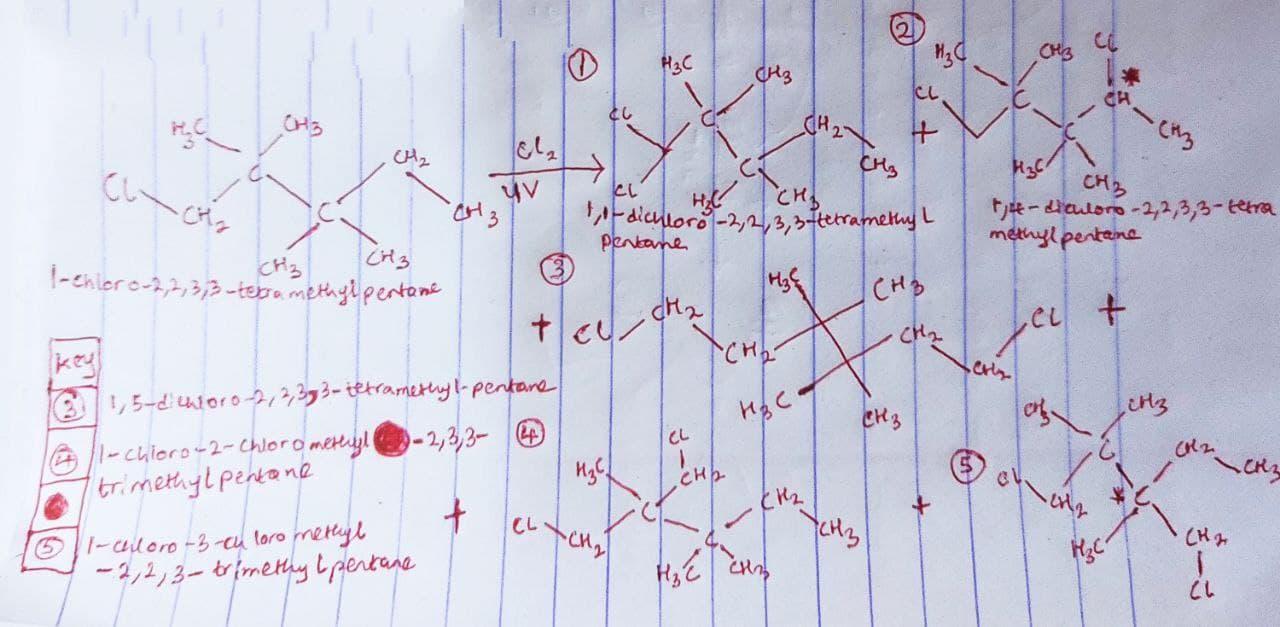 H₃C
CH₃
C
CH₂
Cl
CH₂
C
CH₃
CH₃
CH₃
1-chloro-2,2,3,3-tetramethylpentane
Cl₂
UV
①
H₃C
CH₃
Cl
C
CH₂
Cl
C
CH₃
H₃C
CH₃
1,1-dichloro-2,2,3,3-tetramethyl
pentane
+
②
H₃C
CH₃
Cl
Cl
C
CH *
C
CH₃
H₃C
CH₃
1,4-dichloro-2,2,3,3-tetra
methylpentane
+
③
Cl
CH₂
CH₂
H₃C
CH₃
CH₂
Cl
CH₂
H₃C
CH₃
+
key
③ 1,5-dichloro-2,2,3,3-tetramethyl-pentane
④ 1-chloro-2-chloromethyl -2,3,3-
trimethylpentane
⑤ 1-chloro-3-chloromethyl
-2,2,3-trimethylpentane
+
④
Cl
H₃C
CH₂
C
CH₂
Cl
CH₂
C
CH₃
H₃C
CH₃
+
⑤
CH₃
CH₃
C
CH₂
CH₃
Cl
CH₂
* C
H₃C
CH₂
Cl